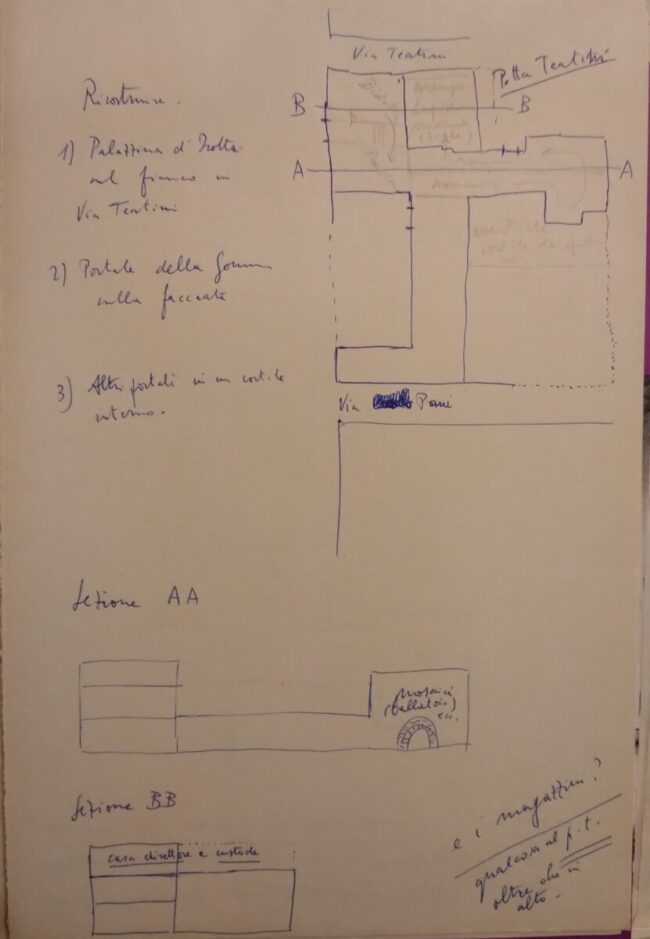 Via Teatini
Ricostruire.
Pᵗᵗᵃ Teatini
B B
1) Palazzina d'Isotta
sul fianco in
Via Teatini
A A
2) Portale della
sulla facciata
3) Altri portali in un cortile
interno.
Via Poni
Sezione AA
mosaici
(ballatoio)
ecc.
Sezione BB
casa direttore e custode
e i magazzini?
qualcosa al p.t.
oltre che in
alto.